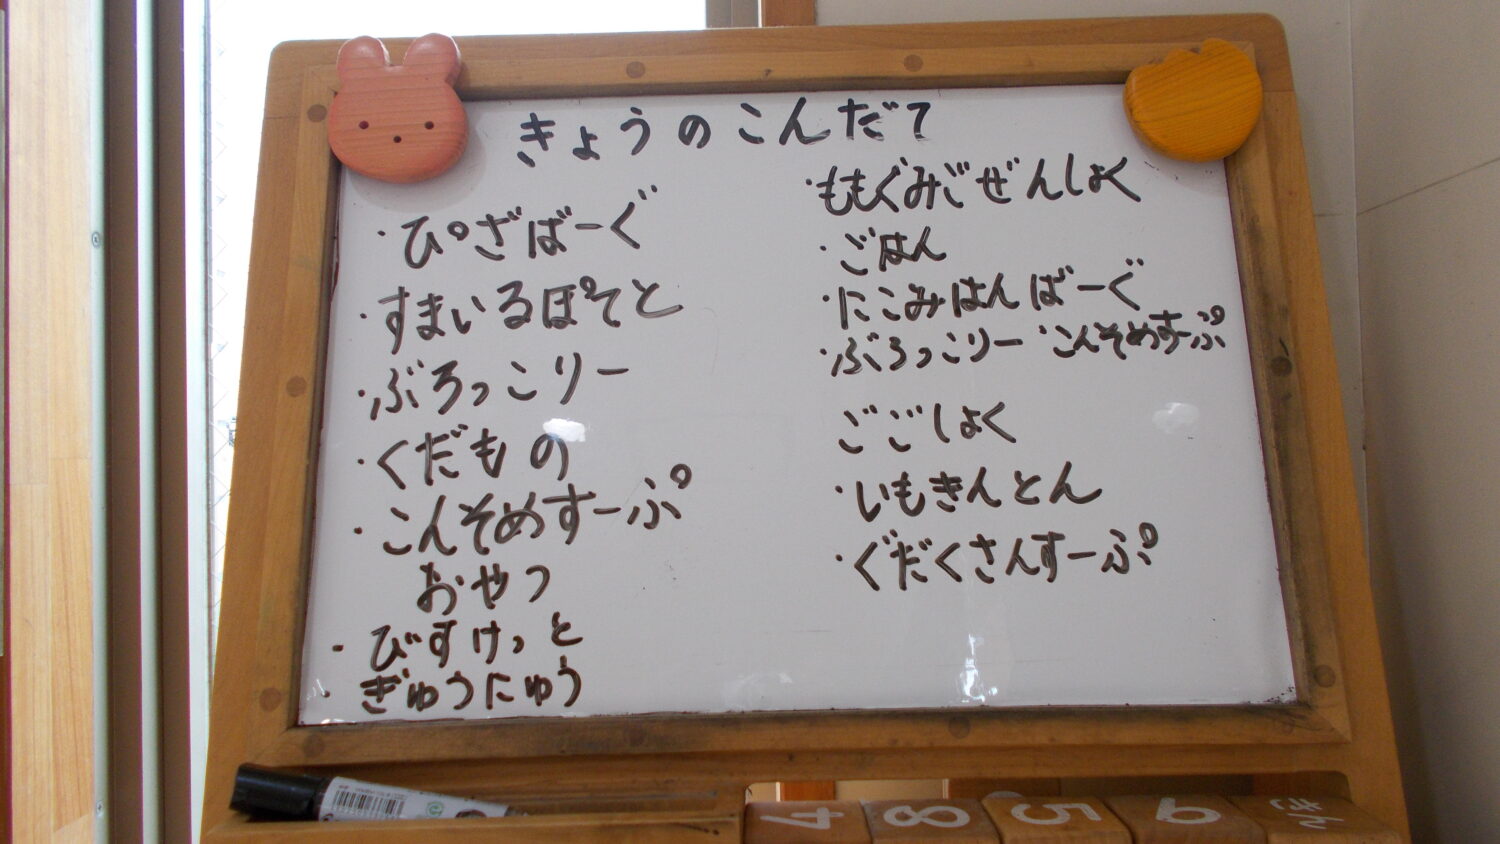 きょうのこんだて
・ぴざばーぐ
・すまいるぽてと
・ぶろっこりー
・くだもの
・こんそめすーぷ
おやつ
・びすけっと
・ぎゅうにゅう
・ももぐみごぜんしょく
・ごはん
・にこみはんばーぐ
・ぶろっこりー ・こんそめすーぷ
ごごしょく
・いもきんとん
・ぐだくさんすーぷ
4 8 5 6 きん